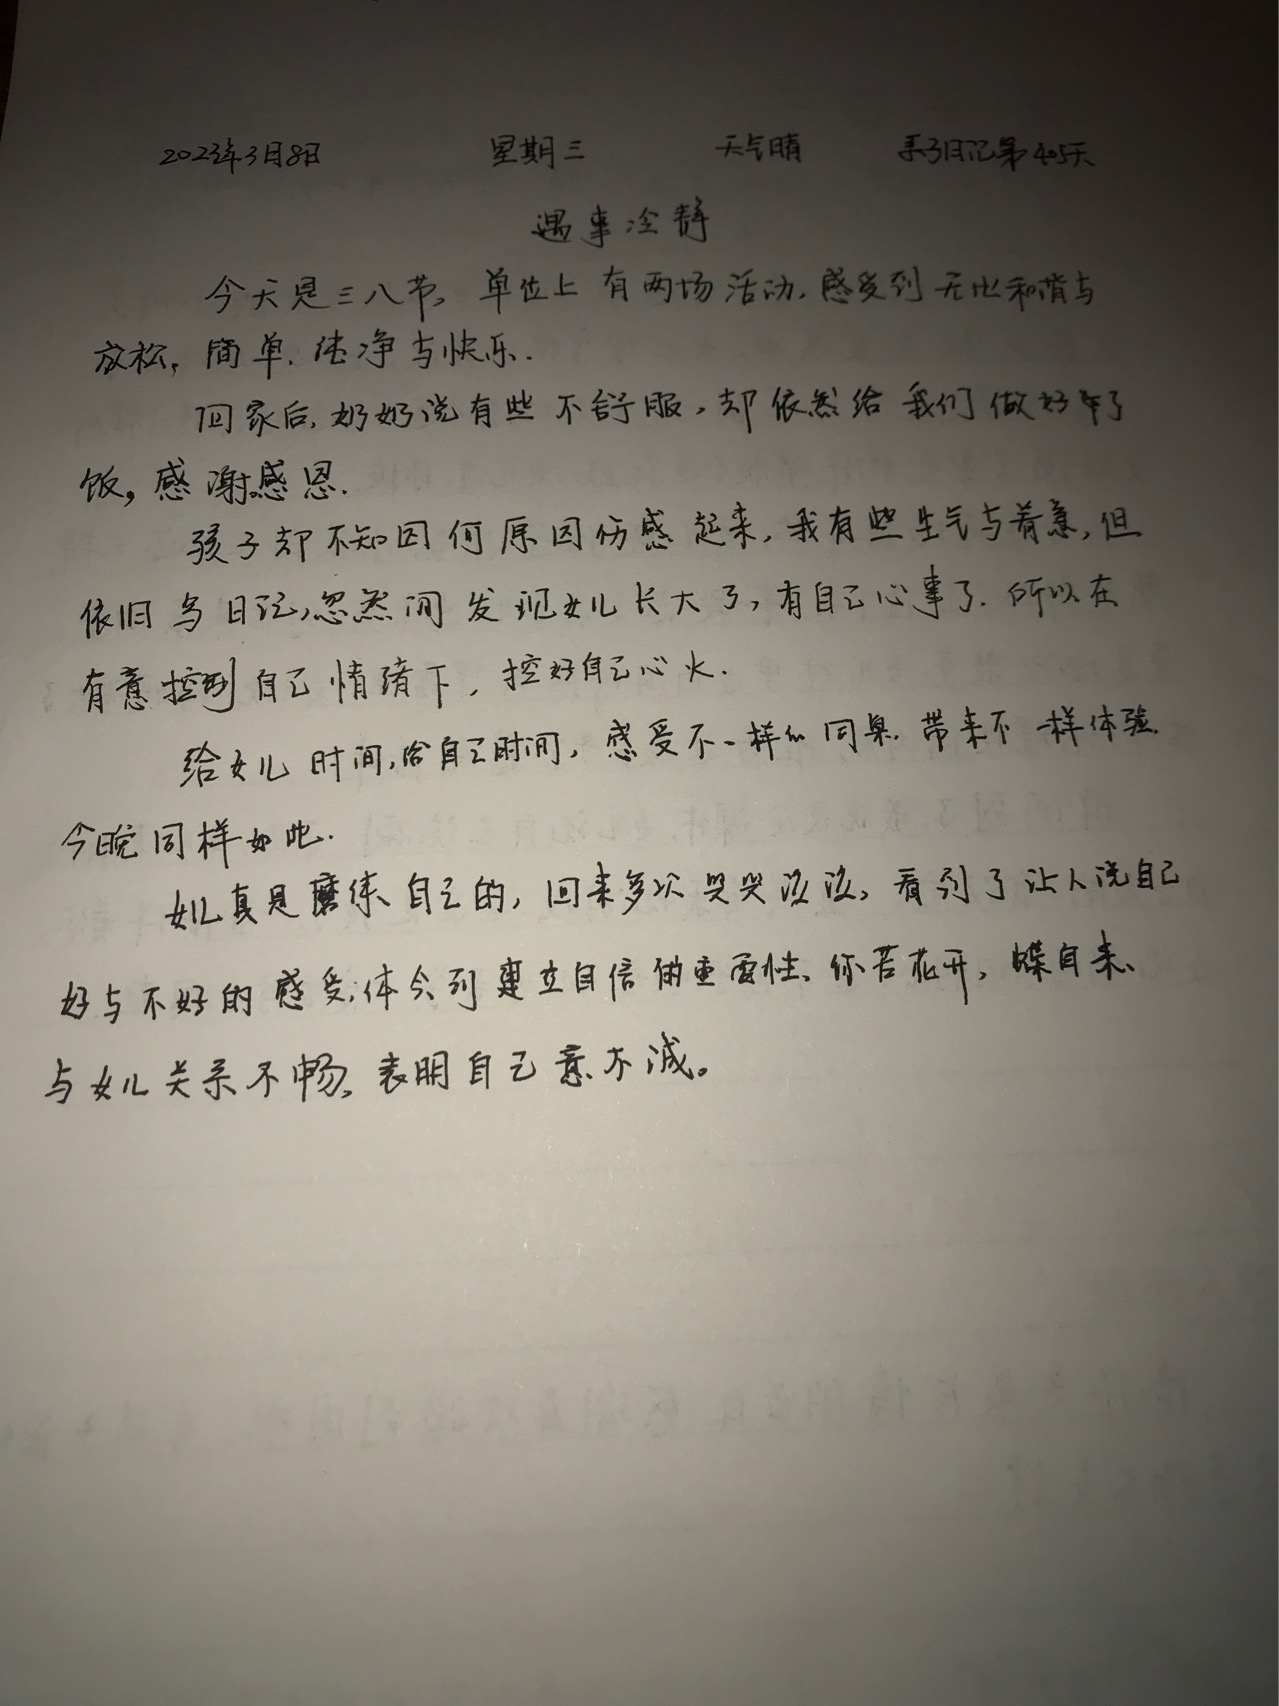 2023年3月8日 星期三 天气晴 亲子日记第405天
遇事冷静
今天是三八节，单位上有两场活动，感受到无比和谐与
放松，简单、纯净与快乐.
回家后，奶奶说有些不舒服，却依然给我们做好了
饭，感谢感恩.
孩子却不知因何原因伤感起来，我有些生气与着急，但
依旧写日记，忽然间发现女儿长大了，有自己心事了.所以在
有意控制自己情绪下，控好自己心火.
给女儿时间，给自己时间，感受不一样的同桌.带来不一样体验.
今晚同样如此.
女儿真是磨练自己的，回来多次哭哭泣泣，看到了让人说自己
好与不好的感受，体会到建立自信的重要性.你若花开，蝶自来、
与女儿关系不畅，表明自己意不诚。